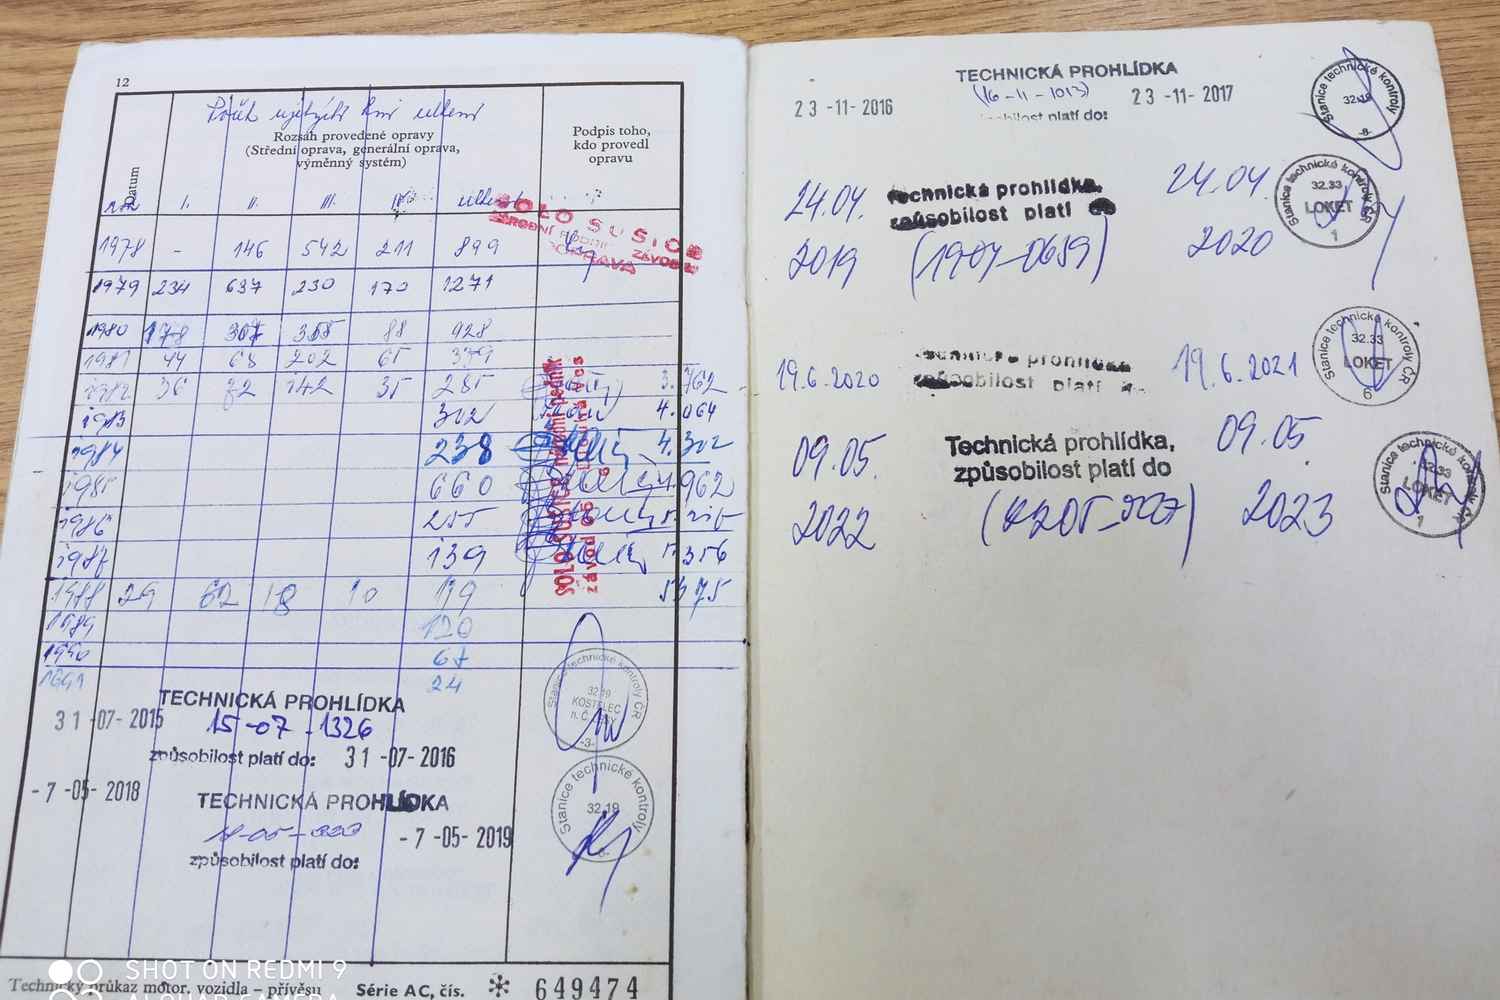 12
Rozsah provedené opravy
(Střední oprava, generální oprava,
výměnný systém)
Podpis toho,
kdo provedl
opravu
Datum
I. II. III.
SOLO SUSICE
1978 - 146 542 211 899
1979 234 637 230 170 1271
1980 178 307 355 88 928
1981 44 68 202 65 379
1982 36 72 142 35 285 3.762
1983 302 4.064
1984 238 4.302
1985 660 4.962
1986 255
1987 139 5.356
1988 29 62 18 10 119 5475
1989 120
1990 67
24
TECHNICKÁ PROHLÍDKA
31-07-2015 15-07-1326
způsobilost platí do: 31-07-2016
Stanice technické kontroly ČR
32.19
KOSTELEC
-3-
-7-05-2018 TECHNICKÁ PROHLÍDKA
-7-05-2019
způsobilost platí do:
Stanice technické kontroly
32.19
Technický průkaz motor. vozidla – přívěsu Série AC, čís. * 649474
SHOT ON REDMI 9
AI QUAD CAMERA
TECHNICKÁ PROHLÍDKA
23-11-2016 (16-11-1013) 23-11-2017
způsobilost platí do:
Stanice technické kontroly
32.19
-8-
24.04. technická prohlídka, 24.04.
způsobilost platí do
2019 (1904-0659) 2020
Stanice technické kontroly ČR
32.33
LOKET
1
19.6.2020 technická prohlídka 19.6.2021
způsobilost platí
Stanice technické kontroly ČR
32.33
LOKET
6
09.05. Technická prohlídka, 09.05.
způsobilost platí do
2022 2023
Stanice technické kontroly ČR
32.33
LOKET
1